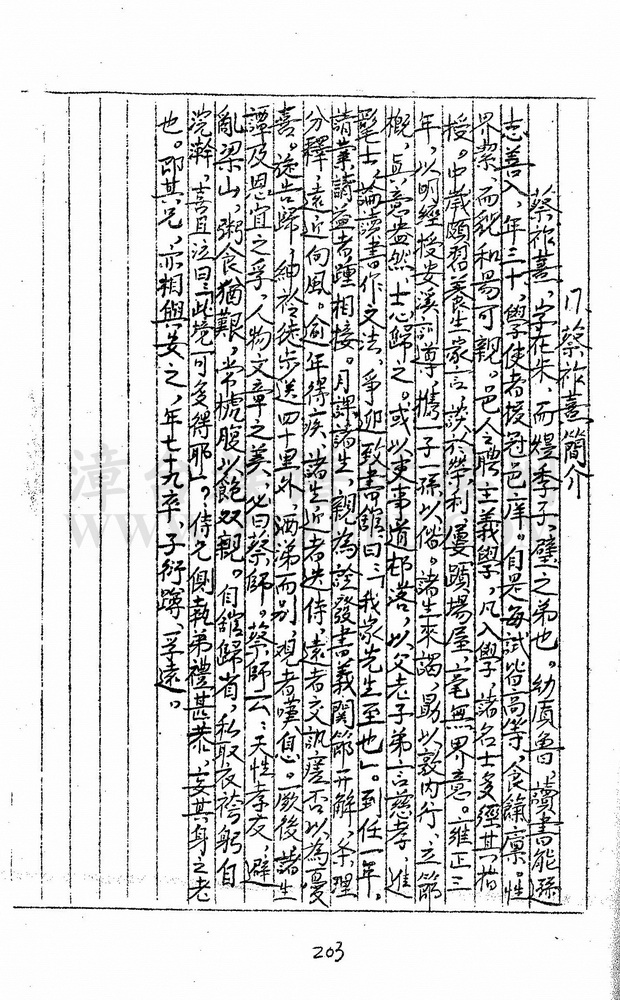 17.蔡祚熹簡介
蔡祚熹，字在朱，而熤季子，璧之弟也。幼質魯，讀書能遜
志善入，年三十，學使者拔冠邑庠。自是每試皆高等，食餼廩。性
界潔，而貌和易可親。邑人聘主義學，凡入學諸名士多經其指
授。中歲頗習養生家言，談於榮利，屢躓場屋，毫無界意。雍正三
年，以明經授安溪訓導，攜一子一孫以偕。諸生來謁，勗以敦內行，立節
概，真意盎然，士心歸之。或以吏事道邨落，以父老子弟言慈孝，進
髦士，論讀書作文法，爭迎致書館曰：「我家先生至也」。到任一年，
請業請益者踵相接。月課諸生，親為詮發書義關節開解，条理
分釋，遠近向風。俞年得疾，諸生近者迭侍，遠者交訊瘥否以為憂
喜。旋告歸，紳衿徒步送四十里外，洒涕而別，觀者嘆息。厥後諸生
譚及恩宜之孚，人物文章之美，必曰蔡師。蔡師云：天性孝友，避
亂梁山，粥食猶艱，常枵腹以飽双親。自館歸省，私取衣袴躬自
浣澣，喜且泣曰：「此境可多得耶」。侍兄側執弟禮甚恭，妄其身之老
也。即其兄，亦相與安之，年七十九卒，子衍蹲，孚遠。
203